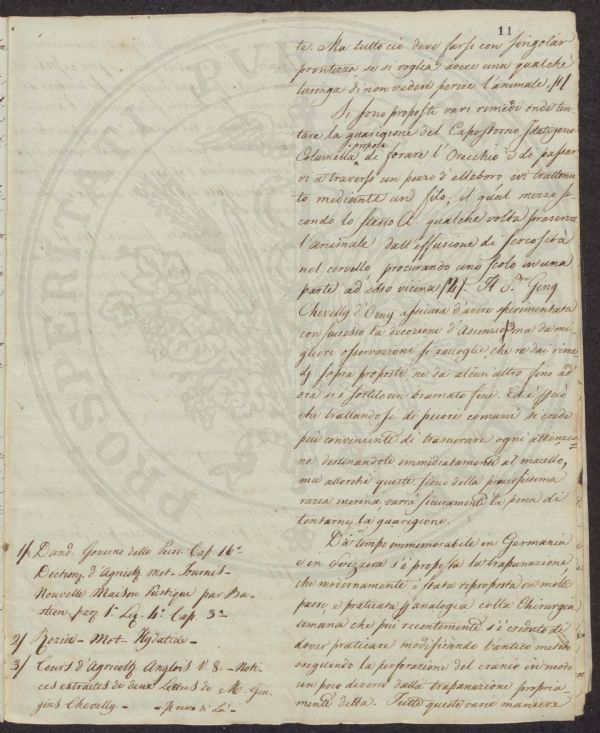 11
te. Ma tutto ciò deve farsi con singolar
prontezza se si voglia avere una qualche
lusinga di non vedere perire l'animale. /1/
Si sono proposti vari rimedi onde ten-
tare la guarigione del Capostorno Idatigeno
propose
Columella di forare l'Orecchio e di passar
vi a traverso un pezzo d'elleboro ivi trattenu-
to mediante un filo; il qual mezzo se-
condo lo stesso A. qualche volta preserva
l'animale dall'effusione di sierosità
nel cervello procurando uno scolo in una
parte ad esso vicina /2/. Il Ging
Chevelly d'Oeny assicura d'avere sperimentata
con successo la decozione d'Assenzio /3 ma da mi-
gliori osservazioni si raccoglie, che ne dai rime-
dj sopra proposti, ne da alcun altro fino ad
ora si è sortito un bramato fine. Ed è perciò
che trattandosi di pecore comuni si crede
più conveniente di trascurare ogni attenzio-
ne destinandole immediatamente al macello,
ma allorchè queste sieno della preziosissima
razza merina varrà sicuramente la pena di
tentarne la guarigione.
Da tempo immemorabile in Germania
e in Svizzera s'è proposta la trapanazione
che modernamente è stata riproposta in molti
paesi e praticata analogia colla Chirurgia
umana che più recentemente s'è creduto di
dover praticare modificando l'antico metodo
eseguendo la perforazione del cranio in modo
un poco diverso dalla trapanazione propria-
mente detta. Tutte queste varie maniere
1/ Dand. Governo delle Pecor. Cap. 16º
Diction. d'Agricolt. mot. Tournis-
Nouvelle Maison Rustique par Ba-
stien. par. 1ª Liz. 4ª Cap. 3º
2/ Rozier - Mot - Hydatide -
3/ Cours d'Agricolt. Anglois V. 8. - Noti-
ces extraites de deux Lettres de M. Gin-
gins Chevelly -